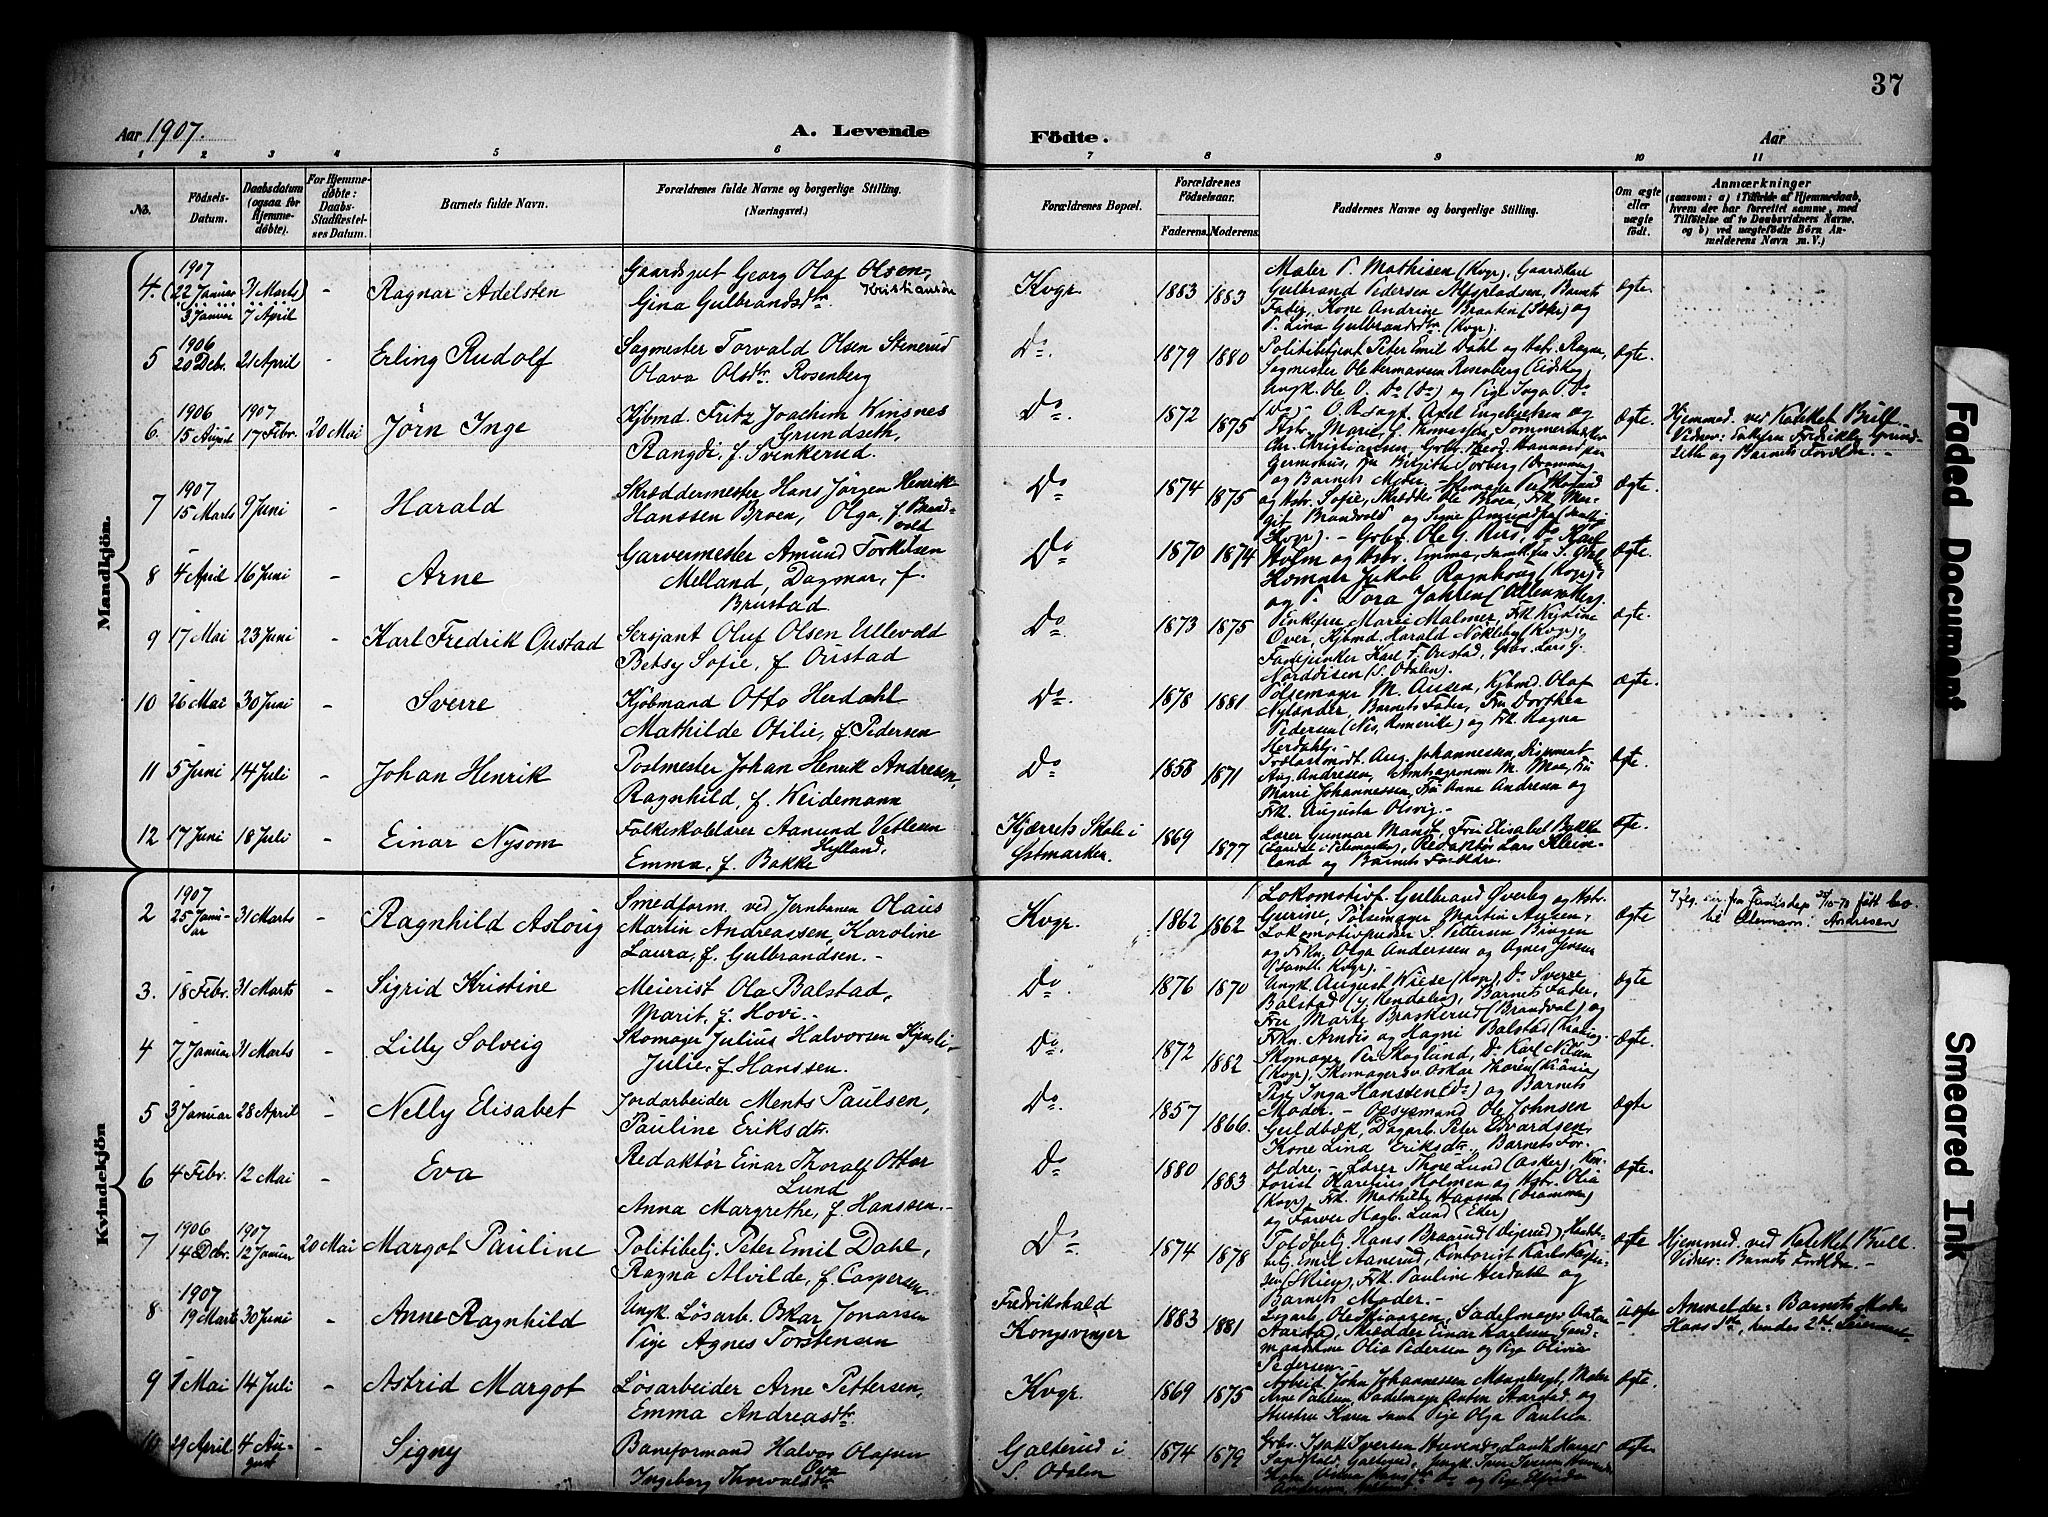 37
Aar 1907.
A. Levende
Födte.
Aar
1 2 3 4 5 6 7 8 9 10 11
No.
Födsels-
Datum.
Daabsdatum
(ogsaa for
Hjemme-
döbte).
For Hjemme-
döbte:
Daabs-
Stadfæstel-
ses Datum.
Barnets fulde Navn.
Forældrenes fulde Navne og borgerlige Stilling.
(Næringsvei.)
Forældrenes Bopæl.
Forældrenes
Födselsaar.
Faderens.
Moderens.
Faddernes Navne og borgerlige Stilling.
Om ægte
eller
uægte
födt.
Anmærkninger
(saasom: a) i Tilfælde af Hjemmedaab,
hvem der har forrettet samme, med
Tilföielse af to Daabsvidners Navne,
og b) ved uægtefödte Börn An-
melderens Navn m. V.)
Mandkjön.
4. 1907 (22 Januar 3 Januar 7 April - Ragnar Adelsten
Gaardsgut Georg Olaf Olsen, Kristiansen
Gina Gulbrandsdtr.
Kvgr. 1883 1883
Maler P. Mathisen (Kvgr), Gaardskarl
Gulbrand Pedersen, Barnets
Fader, Kone Andrine Braaten og
P. Lina Gulbrandsdtr (Kvgr).
Ægte.
5 1906 20 Debr. 21 April - Erling Rudolf
Sagmester Torvald Olsen Stenerud
Olava Olsdtr. Rosenberg
Do. 1879 1880
Politibetjent Peter Emil Dahl og Hstr. Ragna,
Sagmester Ole Hermansen Rosenberg (Eidskog)
Ungk. Ole O. Do (Do) og Pige Inga O. Do
Ægte.
6. 1906 15 August 1907 17 Febr. 20 Mai Jørn Inge
Kjøbmd. Fritz Joachim Winsnes
Grundseth,
Rangdi, f. Svenkerud.
Do. 1872 1875
(Do) - O.R.sagf. Axel Engebretsen og
Hstr. Marie, S. Thomassen,
Chr. Christiansen,
Fru Birgitte Torberg (Drammen)
og Barnets Moder. -
Ægte.
Hjemmed. ved Kateket Bull.
Vidner: Enkefru Fredrikke Grund-
seth og Barnets Forældre. -
7 1907 15 Marts 9 Juni - Harald
Skræddermester Hans Jørgen Henrik
Hanssen Broen, Olga, f. Brand-
vold
Do 1874 1875
Skomager Per Skoglund
og Hstr. Sofie, Skrædder Ole Broen, Frk. Mar-
git Brandvold og Signe
Kvgr). -
Ægte.
8 4 April 16 Juni - Arne
Garvermester Amund Torkilsen
Melland, Dagmar, f.
Brustad
Do 1870 1874
Grbr. Ole G. Hird, Do Karl
Holm og Hstr. Emma, samt Fru S.
Jakob Ragnhaug (Kvgr),
og P. Tora Johsen
Ægte.
9 17 Mai 23 Juni - Karl Fredrik Oustad
Sersjant Oluf Olsen Ullevold
Betsy Sofie, f. Oustad
Do. 1873 1875
Enkefru Marie Malmer, Frk. Kristine
Over, Kjbmd. Harald Nøkleby (Kvgr),
Fanejunker Karl F. Oustad, Grbr. Lars G.
Norddisen (S. Odalen).
Ægte.
10 26 Mai 30 Juni - Sverre
Kjøbmand Otto Herdahl
Mathilde Otilie, f. Pedersen
Do. 1878 1881
Pølsemager M. Ausen, Kjbmd. Olaf
Nylander, Barnets Fader, Fru Dorthea
Pedersen (Nes, Romerike) og Frk. Ragna
Herdahl. -
Ægte.
11 5 Juni 14 Juli - Johan Henrik
Postmester Johan Henrik Andresen,
Ragnhild, f. Weidemann
Do. 1858 1871
Aug. Johannessen, Disponent
Aug. Andresen, Amtsagronom M. Moe, Fru
Marie Johannessen, Fru Anna Andresen og
Frk. Augusta Olsvig. -
Ægte.
12 17 Juni 18 Juli - Einar Nysom
Folkeskolelærer Aanund Vetlesen
Hylland,
Emma, f. Bakke
Kjærrets Skole i
Østmarken. 1869 1877
Lærer Gunnar Manst, Fru Elisabet Bakke
Redaktør Lars Klein-
land og Barnets Forældre.
Ægte.
Kvindekjön
2 1907 25 Janu-
ar 31 Marts - Ragnhild Aslaug
Smedform. ved Jernbanen Olaus
Martin Andreassen, Karoline
Laura, f. Gulbrandsen. -
Kvgr. 1862 1862
Lokomotivf. Gulbrand Øverby og Hstr.
Gurine, Pølsemager Martin Ausen,
Lokomotivpudser S. Pettersen Bingen
og Frkn. Olga Andersen og Agnes Jensen
(samtl. Kvgr). -
Ægte
Andresen
3. 18 Febr. 31 Marts - Sigrid Kristine
Meierist Ola Balstad,
Marit, f. Hovi. -
Do 1876 1870
Ungk. August Wiese (Kvgr), Do Sverre
Balstad (y. Rendalen), Barnets Fader,
Fru Marte Braskerud (Brandval) og
Frkn. Arndis og Magni Balstad
Ægte
4 7 Januar 31 Marts - Lilly Solveig
Skomager Julius Halvorsen Kjensli -
Julie, f. Hanssen.
Do. 1872 1882
Skomager Per Skoglund, Do Karl Nilsen
(Kvgr), Skomagersv. Oskar Thoren (Kr.ania)
Pige Inga Hanssen (Do) og Barnets
Moder. -
Ægte.
5 3 Januar 28 April - Nelly Elisabet
Jordarbeider Ments Paulsen,
Pauline Eriksdtr.
Do. 1857 1866.
Opsysmand Ole Johnsen
Guldbæk, Dagarb. Peter Edvardsen,
Kone Lina Eriksdtr., Barnets For-
ældre. -
Ægte
6 4 Febr. 12 Mai - Eva
Redaktør Einar Thoralf Ottar
Lund
Anna Margrethe, f. Hanssen. -
Do 1880 1883
Lærer Thore Lund (Asker), Kon-
torist Harelius Holmen og Hstr. Olia
(Kvgr), Frk. Mathilde Hanssen (Drammen)
og Farver Hagb. Lund (Eder)
Ægte.
7 1906 14 Debr. 1907 12 Januar 20 Mai Margot Pauline
Politibetj. Peter Emil Dahl,
Ragna Alvilde, f. Caspersen.
Do 1874 1878
Toldbetj. Hans Braarud,
betj. Emil Aanerud, Kontorist Karl Kasper-
sen (Skien), Frk. Pauline Herdahl og
Barnets Moder. -
Ægte
Hjemmed. ved Kateket Bull.
Vidner: Barnets Forældre. -
8 1907 19 Marts 30 Juni - Anne Ragnhild
Ungk. Løsarb. Oskar Jonassen
Pige Agnes Torstensen
Fredrikshald
Kongsvinger 1883 1881
Løsarb. Ole Stiansen, Sadelmager Anton
Aarstad, Skrædder Einar Karlsen, Gaard-
Olia Pedersen og Pige Olivia
Pedersen. -
uægte
Anmelder: Barnets Moder
Hans 1ste, hendes 2det Leiermaal
9 1 Mai 14 Juli - Astrid Margot
Løsarbeider Arne Pettersen,
Emma Andreasdtr.
Kvgr. 1869 1875
Arbeid. John Johannesen Monsberget, Maler
Arne Paulsen, Sadelmager Anton Aarstad og
Hustru Karen samt Pige Olga Paulsen.
Ægte.
10 29 April 4 Au-
gust - Signy
Baneformand Halvor Olafsen
Ova
Ingeborg Thorvalsdtr
Galterud i
S. Odalen 1874 1879
Grbr. Isak Iversen
Ægte
Faded Document
Smeared Ink